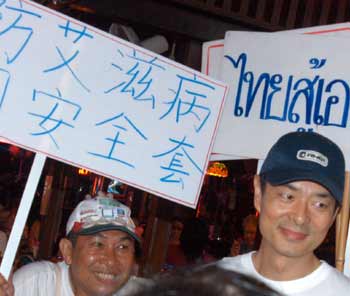 防艾滋病
用安全套
ไทยสู้เอ